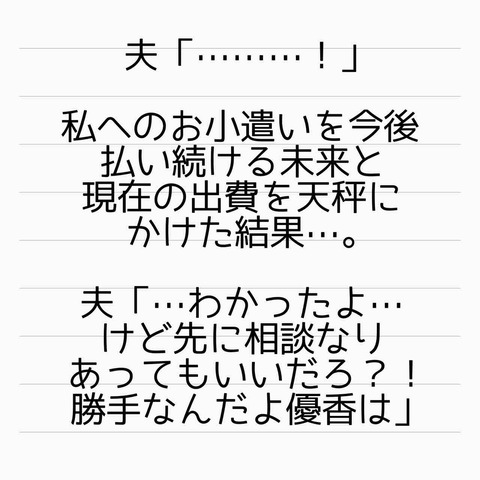 夫「………！」
私へのお小遣いを今後
払い続ける未来と
現在の出費を天秤に
かけた結果…。
夫「…わかったよ…
けど先に相談なり
あってもいいだろ？！
勝手なんだよ優香は」